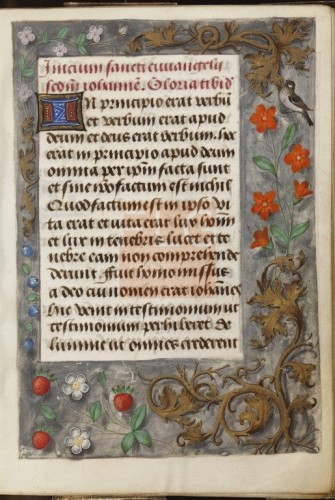 Inicium sancti euuangelii
scdm iohannē. Gloria tibi d
In principio erat verbū
et verbum erat apud
deum et deus erat verbum. hoc
erat in principio apud deum
omnia per ipm facta sunt
et sine ipo factum est nichil
Quod factum est in ipso vi
ta erat et vita erat lux homi
et lux in tenebris lucet et te
nebre eam non comprehende
derunt Fuit homo missus
a deo cui nomen erat iohānes
hic venit in testimonium ut
testimonium perhiberet de
lumine ut omnes crederent